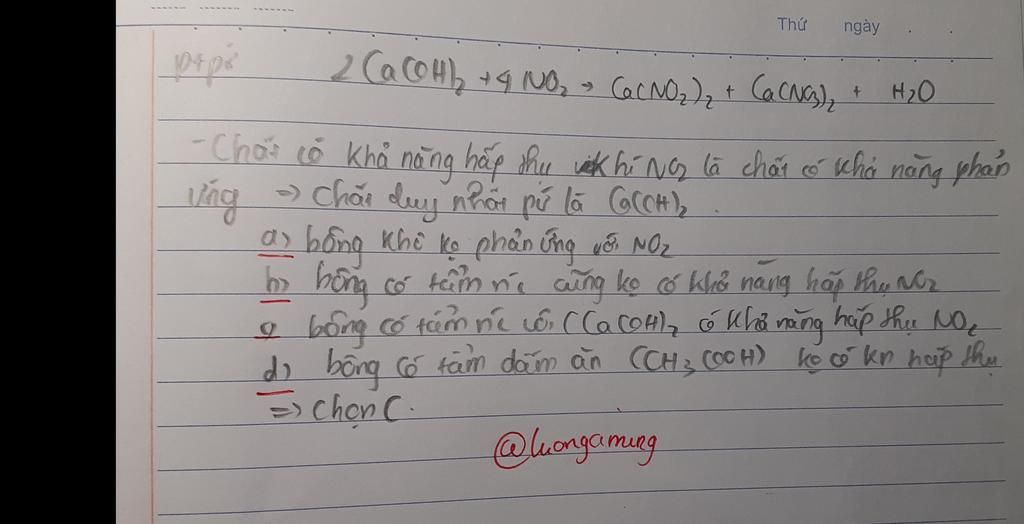 Thứ ngày . .
ptpứ 2Ca(OH)₂ + 4NO₂ → Ca(NO₂)₂ + Ca(NO₃)₂ + H₂O
- Chất có khả năng hấp thụ khí NO₂ là chất có khả năng phản
ứng => chất duy nhất pứ là Ca(OH)₂.
a) bông khô ko phản ứng với NO₂
b) bông có tẩm nc cũng ko có khả năng hấp thụ NO₂
c) bông có tẩm nc vôi (Ca(OH)₂ có khả năng hấp thụ NO₂
d) bông có tẩm dấm ăn (CH₃COOH) ko có kn hấp thụ
=> chọn C.
@luongamung